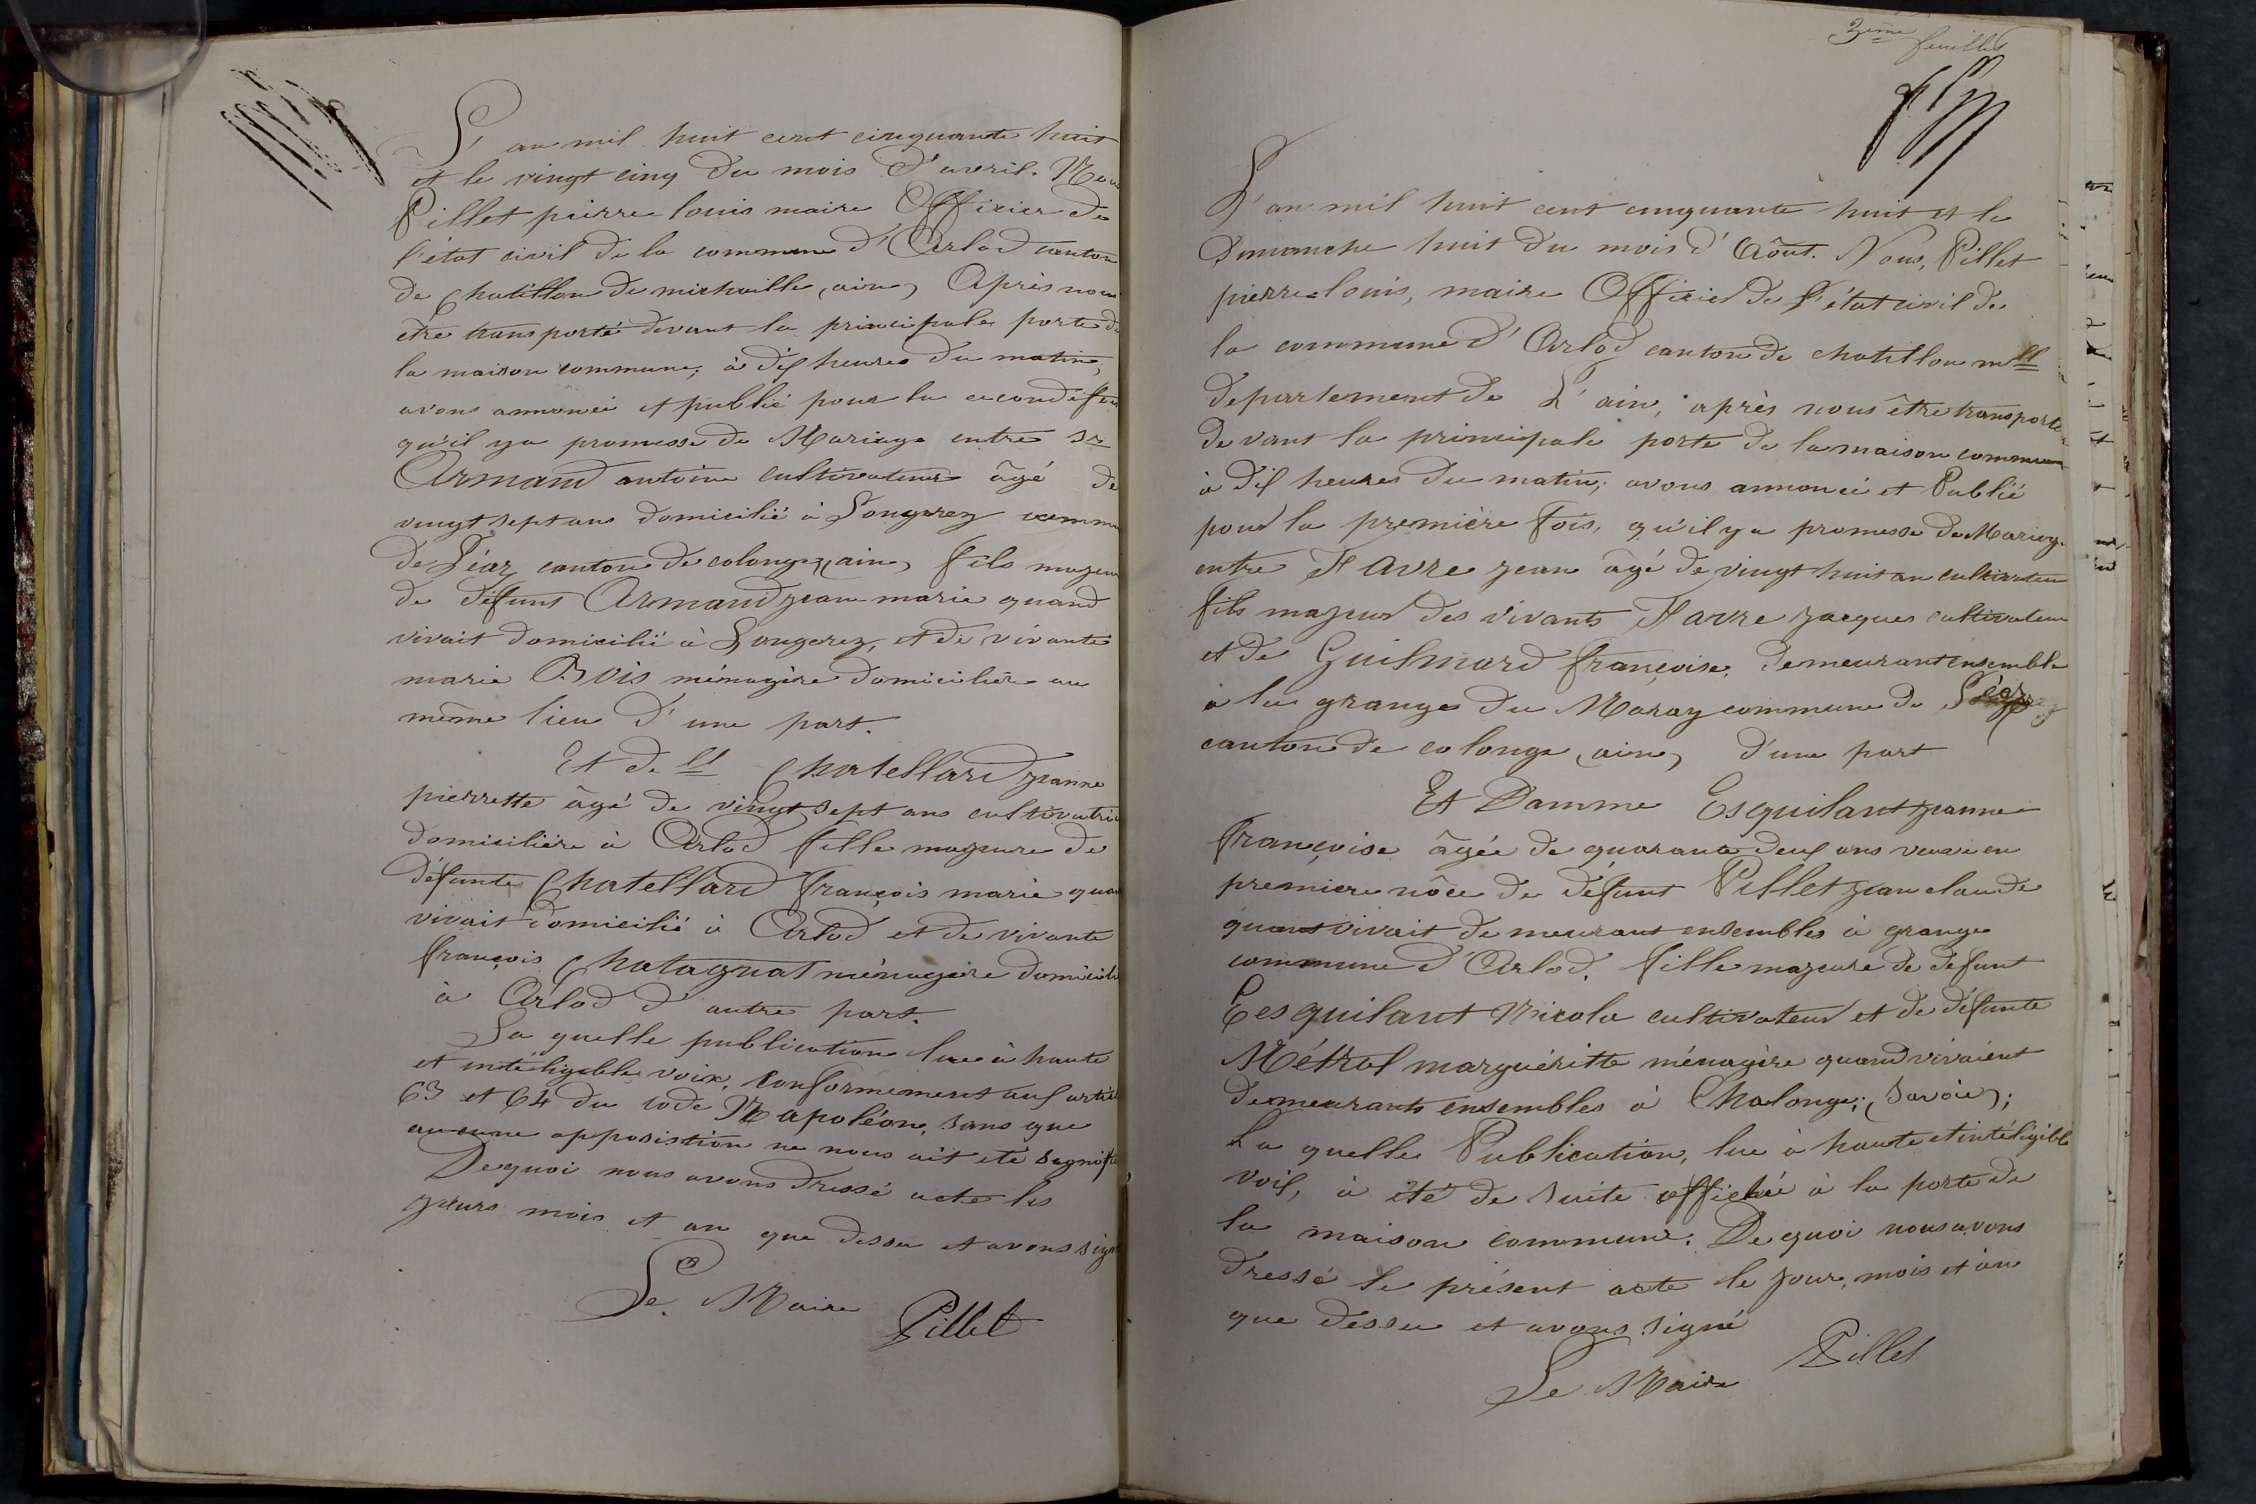 L'an mil huit cent cinquante huit
et le vingt cinq du mois d'avril. Nous
Pillet pierre louis maire Officier de
l'état civil de la commune d'Arlod canton
de Chatillon de michaille (ain) Après nous
être transporté devant la principale porte de
la maison commune; à dix heures du matin,
avons annoncé et publié pour la seconde fois
qu'il y a promesse de Mariage entre sr
Armand antoine cultivateur âgé de
vingt sept ans domicilié à Longerey commune
de Léaz canton de colonge (ain) fils majeur
de défunt Armand jean marie quand
vivait domicilié à Longerey, et de vivante
marie Bois ménagère domiciliée au
même lieu d'une part.
Et de lle Chatellard jeanne
pierrette âgé de vingt sept ans cultivatrice
domicilière à Arlod fille majeure de
défunte Chatellard françois marie quand
vivait domicilié à Arlod et de vivante
françois Chatagnat ménagère domiciliée
à Arlod d'autre part.
La quelle publication lue à haute
et intéligible voix, conformement aux articles
63 et 64 du code Napoléon, sans que
aucune apposistion ne nous ait été signifié
De quoi nous avons dressé acte les
jours mois et an que dessu et avons signé
Le Maire Pillet
3eme feuillet
L'an mil huit cent cinquante huit et le
Dimanche huit du mois d'Aôut. Nous, Pillet
pierre louis, maire Officier de l'état civil de
la commune d'Arlod canton de chatillon mlle
departement de L'ain, après nous être transporté
devant la principale porte de la maison commune
à dix heures du matin; avons annoncé et Publié
pour la première fois, qu'il y a promesse de Mariage
entre Favre jean âgé de vingt huit an cultivateur
fils majeur des vivants Favre jacques cultivateur
et de Guilmard françoise, demeurant ensemble
à la grange du Maray commune de Léaz
canton de colonge (ain) d'une part
Et Damme Esquilant jeanne
françoise âgée de quarante deux ans veuve en
premiere nôce de défunt Pillet jean claude
quant vivait demeurant ensembles à grange
commune d'Arlod, fille majeure de défunt
Eesquilant Nicola cultivateur et de défunte
Métral marguéritte ménagère quand vivaient
demeurants ensembles à Chalonge; (Savoie);
La quelle Publication, lue à haute et intéligible
voix, à été de suite affichée à la porte de
la maison commune. De quoi nous avons
dressé le présent acte le jour, mois et ân
que dessu et avons signé
Le Maire Pillet